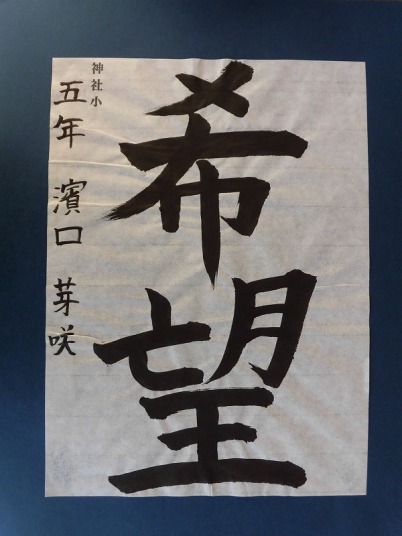 希望
神社小
五年 濱口 芽咲